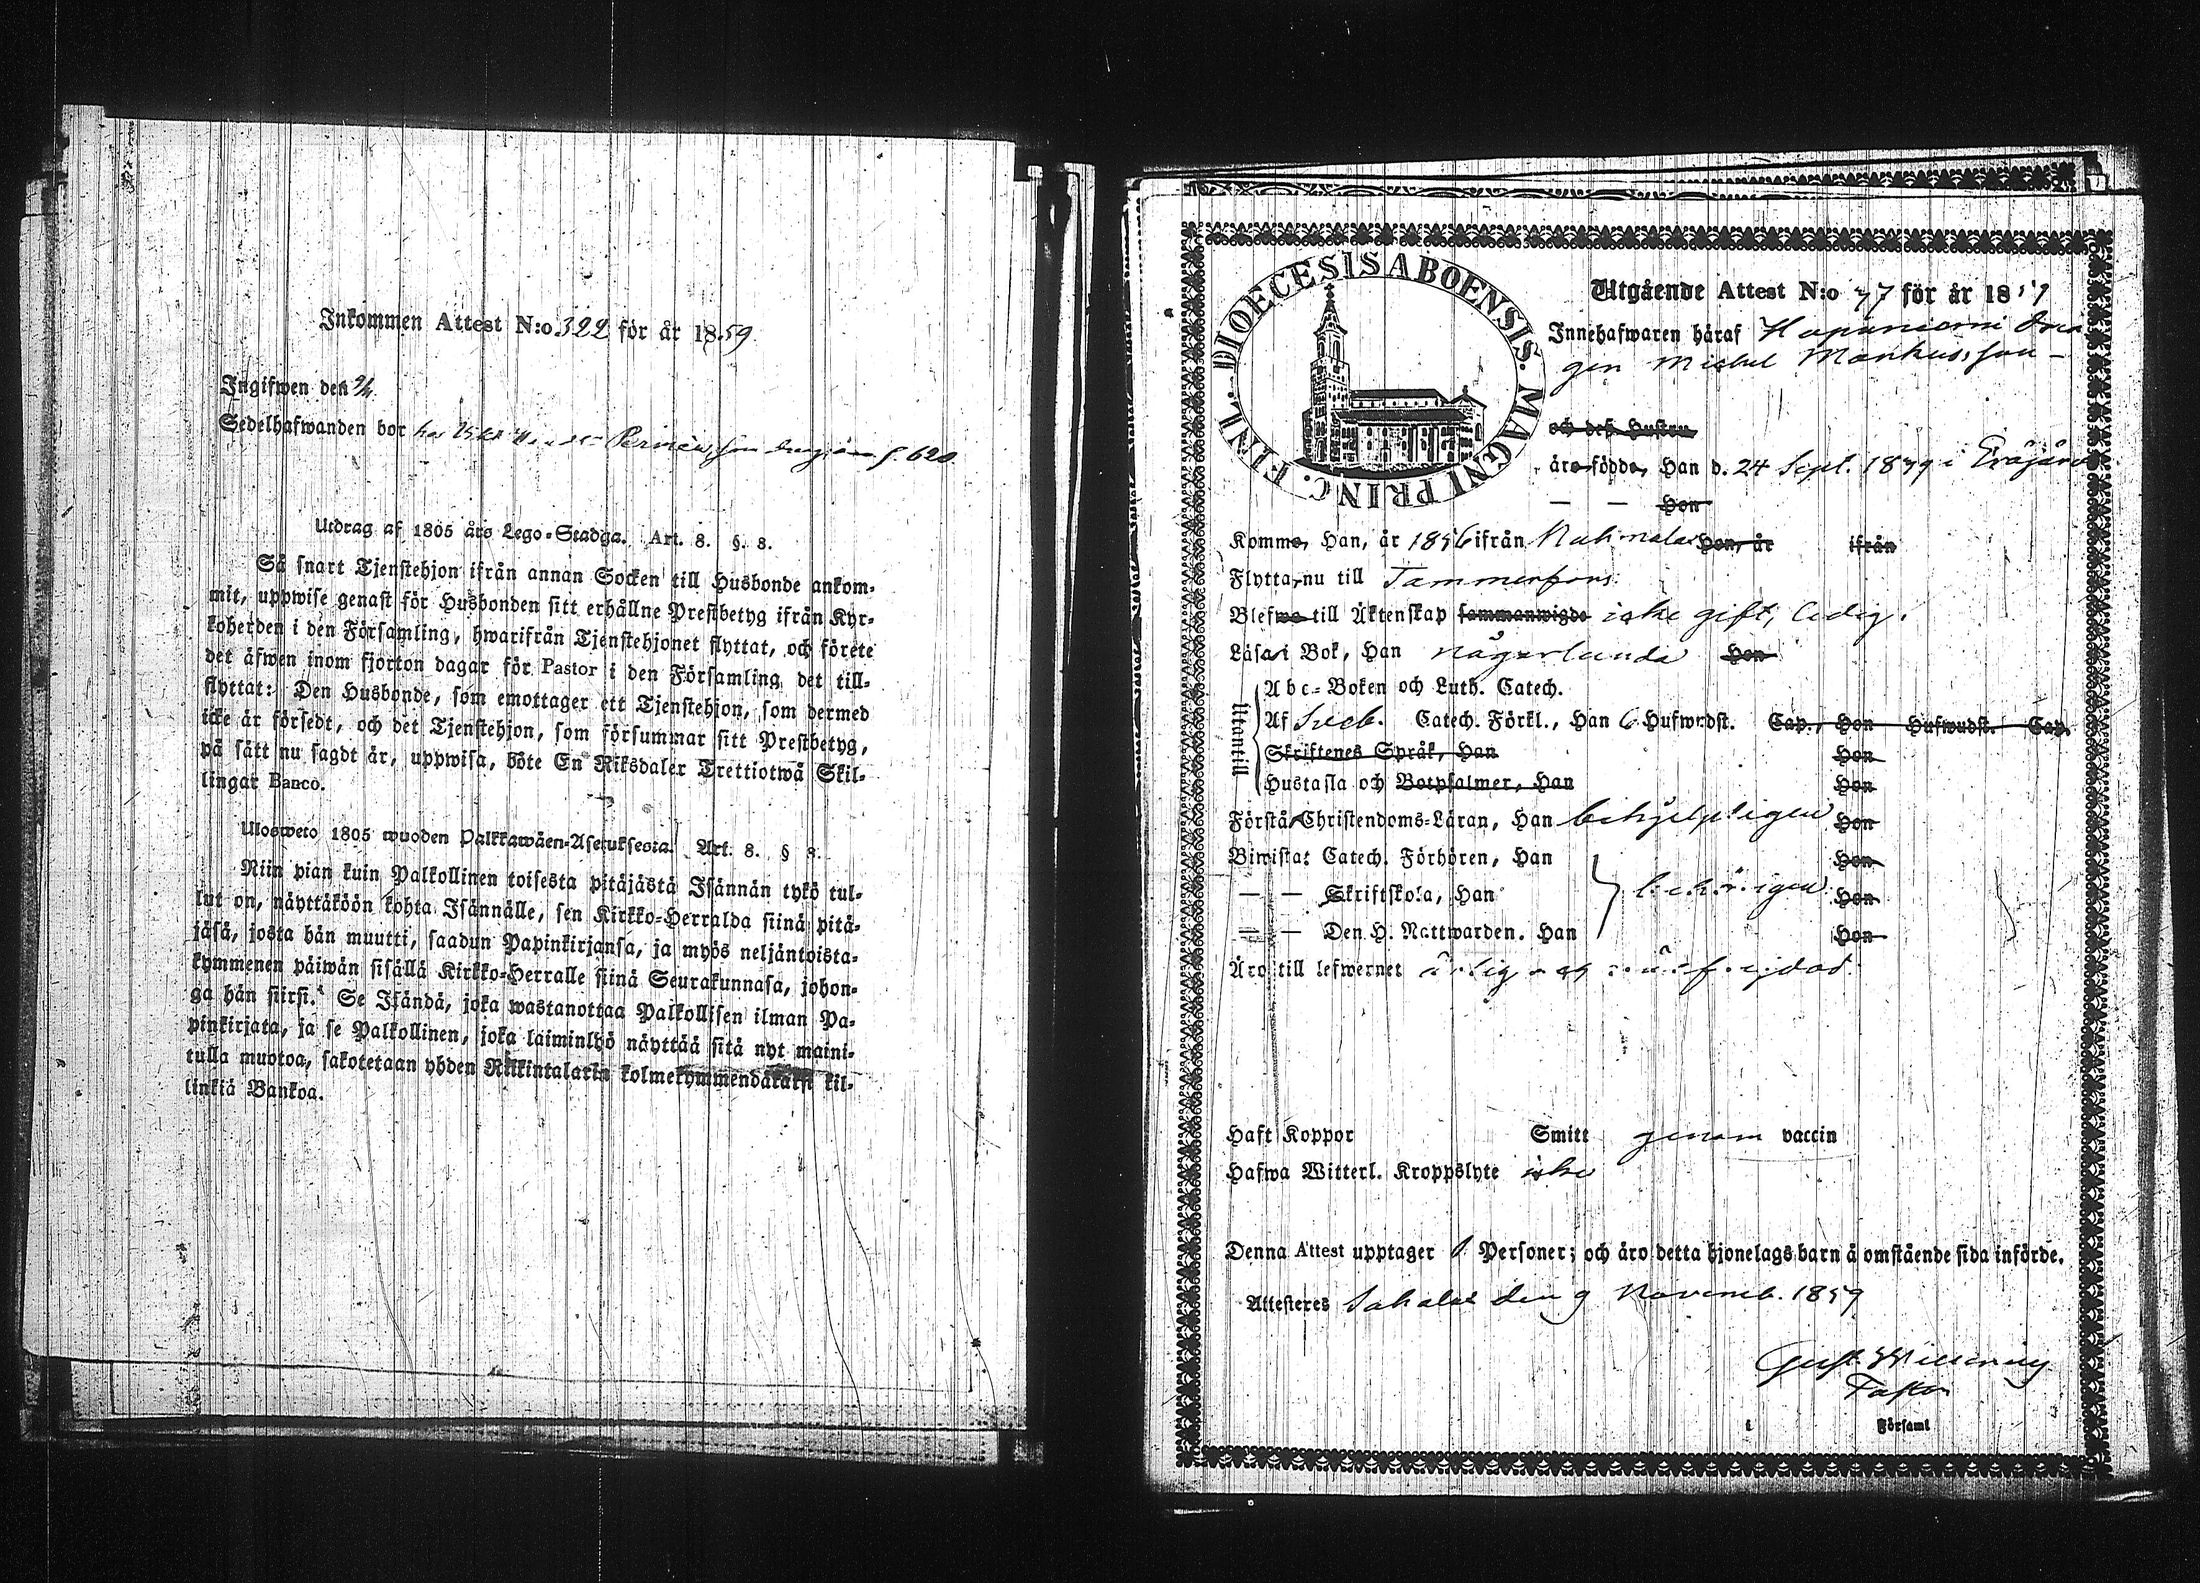 Inkommen Attest N:o 322 för år 1859
Ingifwen den 9/11
Sedelhafwanden bor hos f. 620.
Utdrag af 1805 års Lego-Stadga. Art. 8. §. 8.
Så snart Tjenstehjon ifrån annan Socken till Husbonde ankom-
mit, uppwise genast för Husbonden sitt erhållne Prestbetyg ifrån Kyr-
koherden i den Församling, hwarifrån Tjenstehjonet flyttat, och förete
det äfwen inom fjorton dagar för Pastor i den Församling det till-
flyttat: Den Husbonde, som emottager ett Tjenstehjon, som dermed
icke är försedt, och det Tjenstehjon, som försummar sitt Prestbetyg,
på sätt nu sagdt är, uppwisa, böte En Riksdaler Trettiotwå Skil-
lingar Banco.
Ulosweto 1805 wuoden Palkkawäen-Asetuksesta. Art. 8. § 8.
Niin pian kuin Palkollinen toisesta pitäjästä Isännän tykö tul-
lut on, näyttäköön kohta Isännälle, sen Kirkko-Herralda siinä pitä-
jäsä, josta hän muutti, saadun Papinkirjansa, ja myös neljäntoista-
kymmenen päiwän sisällä Kirkko-Herralle siinä Seurakunnasa, johon-
ga hän siirsi. Se Isändä, joka wastanottaa Palkollisen ilman Pa-
pinkirjata, ja se Palkollinen, joka laiminlyö näyttää sitä nyt maini-
tulla muotoa, sakotetaan yhden Riikintalarin kolmekymmendäkaksi kil-
linkiä Bankoa.
FINL. DIOECESIS ABOENSIS. MAGNI PRINC.
Utgående Attest N:o 77 för år 1859
Innehafwaren häraf Drän
gen Michel Markusson
och deß Hustru
äro födde, Han d. 24 Sept. 1839 i Eräjärvi
— — Hon
Komme, Han, år 1856 ifrån Hon, år ifrån
Flytta nu till Tammerfors.
Blefwe till Äktenskap sammanwigde icke gift, ledig.
Läsa i Bok, Han någorlunda Hon
Utantill
Abc-Boken och Luth. Catech.
Af Sveb. Catech. Förkl., Han 6 Hufwudst. Cap., Hon Hufwudst. Cap.
Skriftenes Språk, Han Hon
Hustafla och Botpsalmer, Han Hon
Förstå Christendoms-Läran, Han behjelpligen Hon
Biwista: Catech. Förhören, Han Hon
— — Skriftskola, Han behörigen Hon
— — Den H. Nattwarden. Han Hon
Äro till lefwernet ärlig och väl frejdad
Haft Koppor Smitt genom vaccin
Hafwa Witterl. Kroppslyte icke
Denna Attest upptager 1 Personer; och äro detta hjonelags barn å omstående sida införde.
Attesteres Sahalax den 9 Novemb. 1859
Gust.
Pastor
i Församl